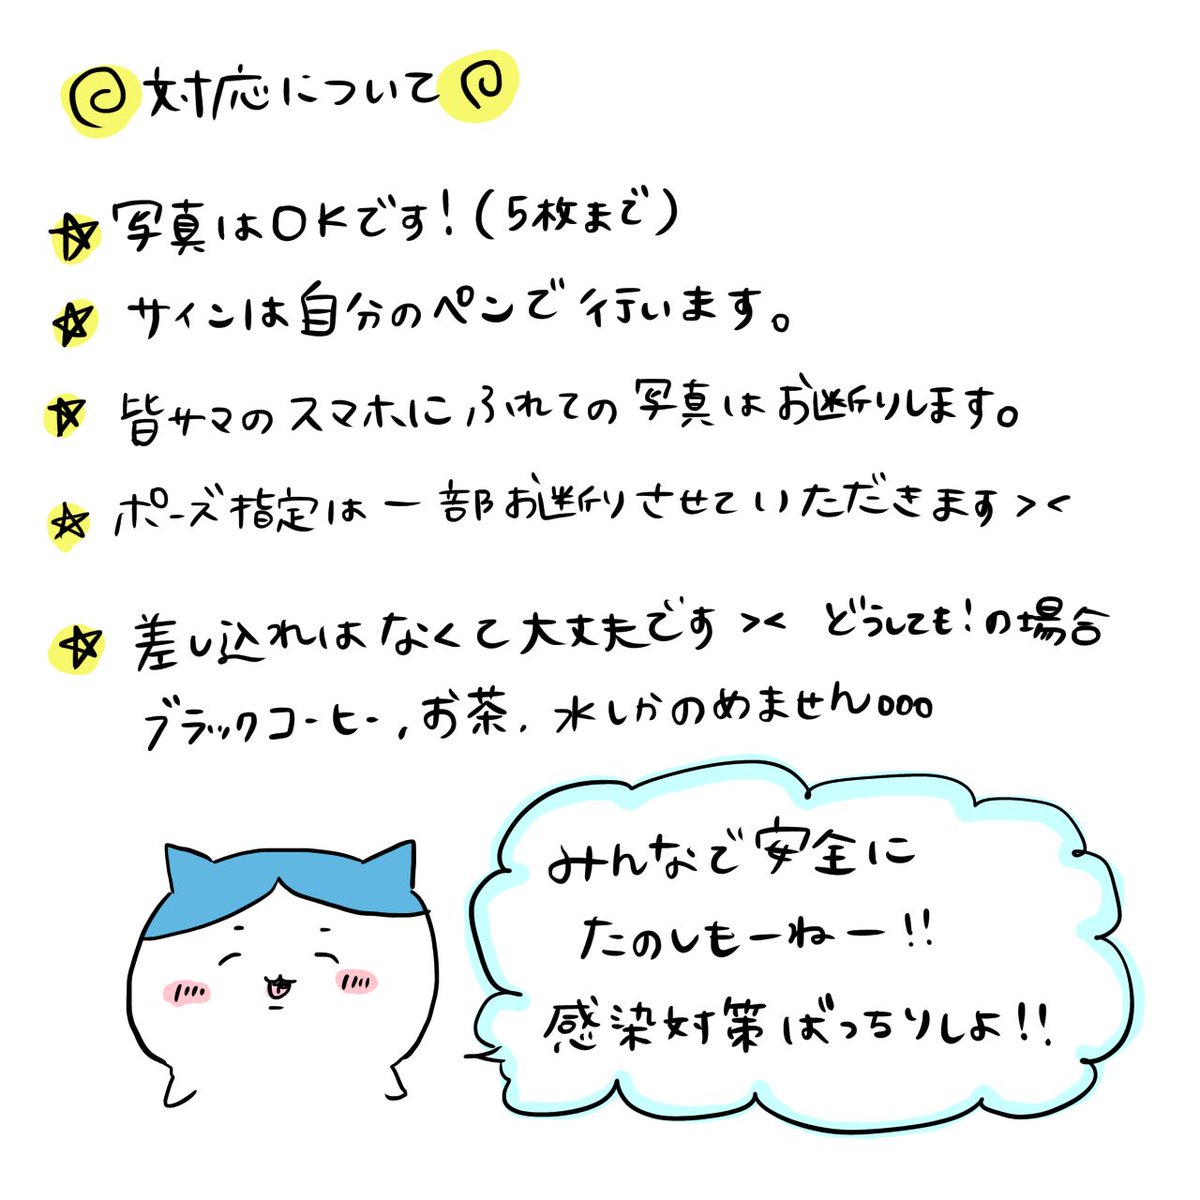 対応について
写真はOKです!(5枚まで)
サインは自分のペンで行います。
皆サマのスマホにふれての写真はお断りします。
ポーズ指定は一部お断りさせていただきます><
差し込れはなくて大丈夫です>< どうしても!の場合
ブラックコーヒー,お茶,水しかのめません。。。
みんなで安全に
たのしもーねー!!
感染対策ばっちりしよ!!